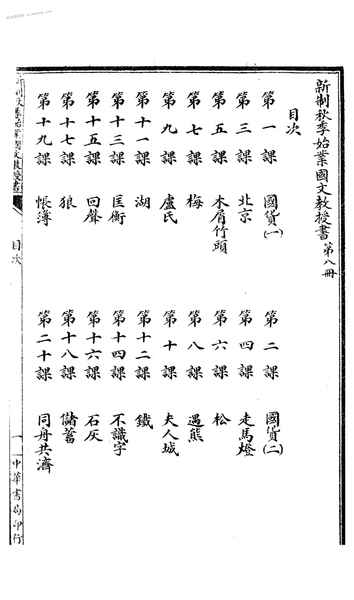 新制秋季始業國文教授書 第八冊
目次
第一課 國貨(一) 第二課 國貨(二)
第三課 北京 第四課 走馬燈
第五課 木屑竹頭 第六課 松
第七課 梅 第八課 遇熊
第九課 盧氏 第十課 夫人城
第十一課 湖 第十二課 鐵
第十三課 匡衡 第十四課 不識字
第十五課 回聲 第十六課 石灰
第十七課 狼 第十八課 儲蓄
第十九課 帳簿 第二十課 同舟共濟
目次
一
中華書局印行